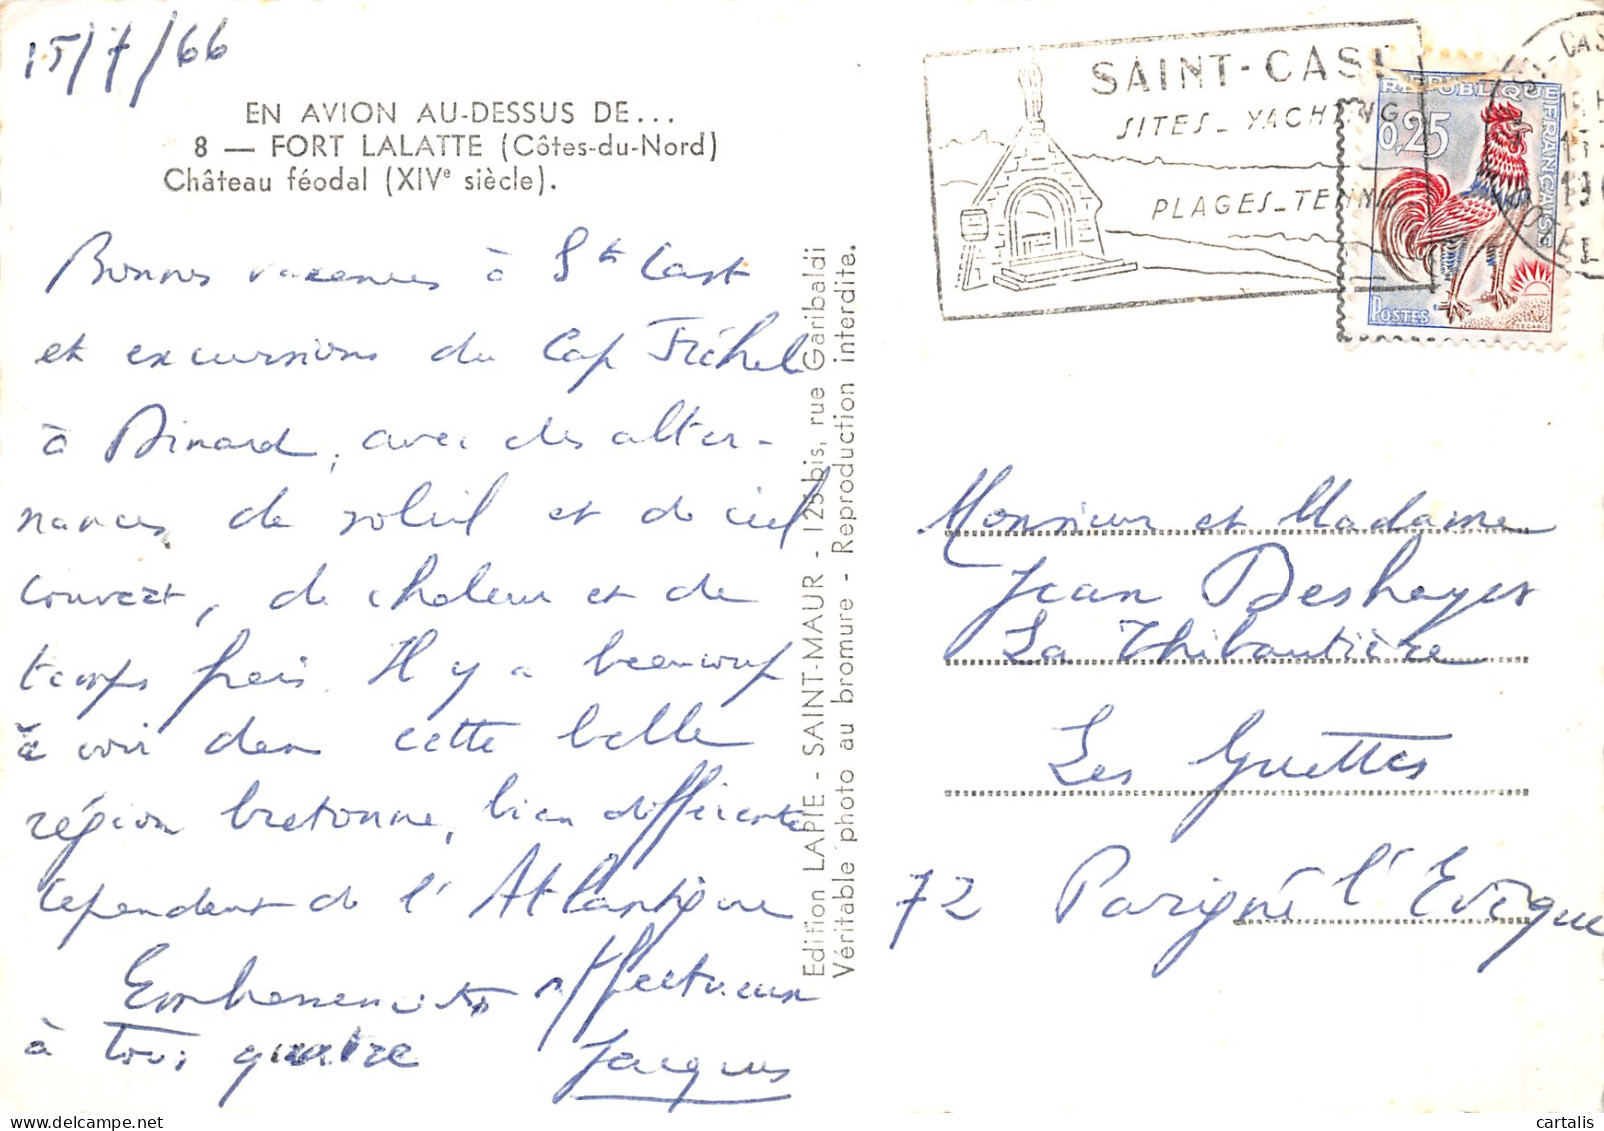 15/7/66
EN AVION AU-DESSUS DE...
8 — FORT LALATTE (Côtes-du-Nord)
Château féodal (XIVe siècle).
Bonnes vacances à St Cast
et excursions du Cap Fréhel
à Dinard, avec des alter-
nances de soleil et de ciel
couvert, de chaleur et de
temps frais. Il y a beaucoup
à voir dans cette belle
région bretonne, bien différente
cependant de l'Atlantique
Embrassements affectueux
à tous quatre Jacques
Edition LAPIE - SAINT-MAUR - 125 bis, rue Garibaldi
Véritable photo au bromure - Reproduction interdite.
SAINT-CAST
SITES_YACHTING
PLAGES_TENNIS
REPUBLIQUE FRANÇAISE
0,25
POSTES
Monsieur et Madame
Jean Deshayes
La Thibautière
Les Guettes
72 Parigné l'Evêque
cartalis
www.delcampe.net